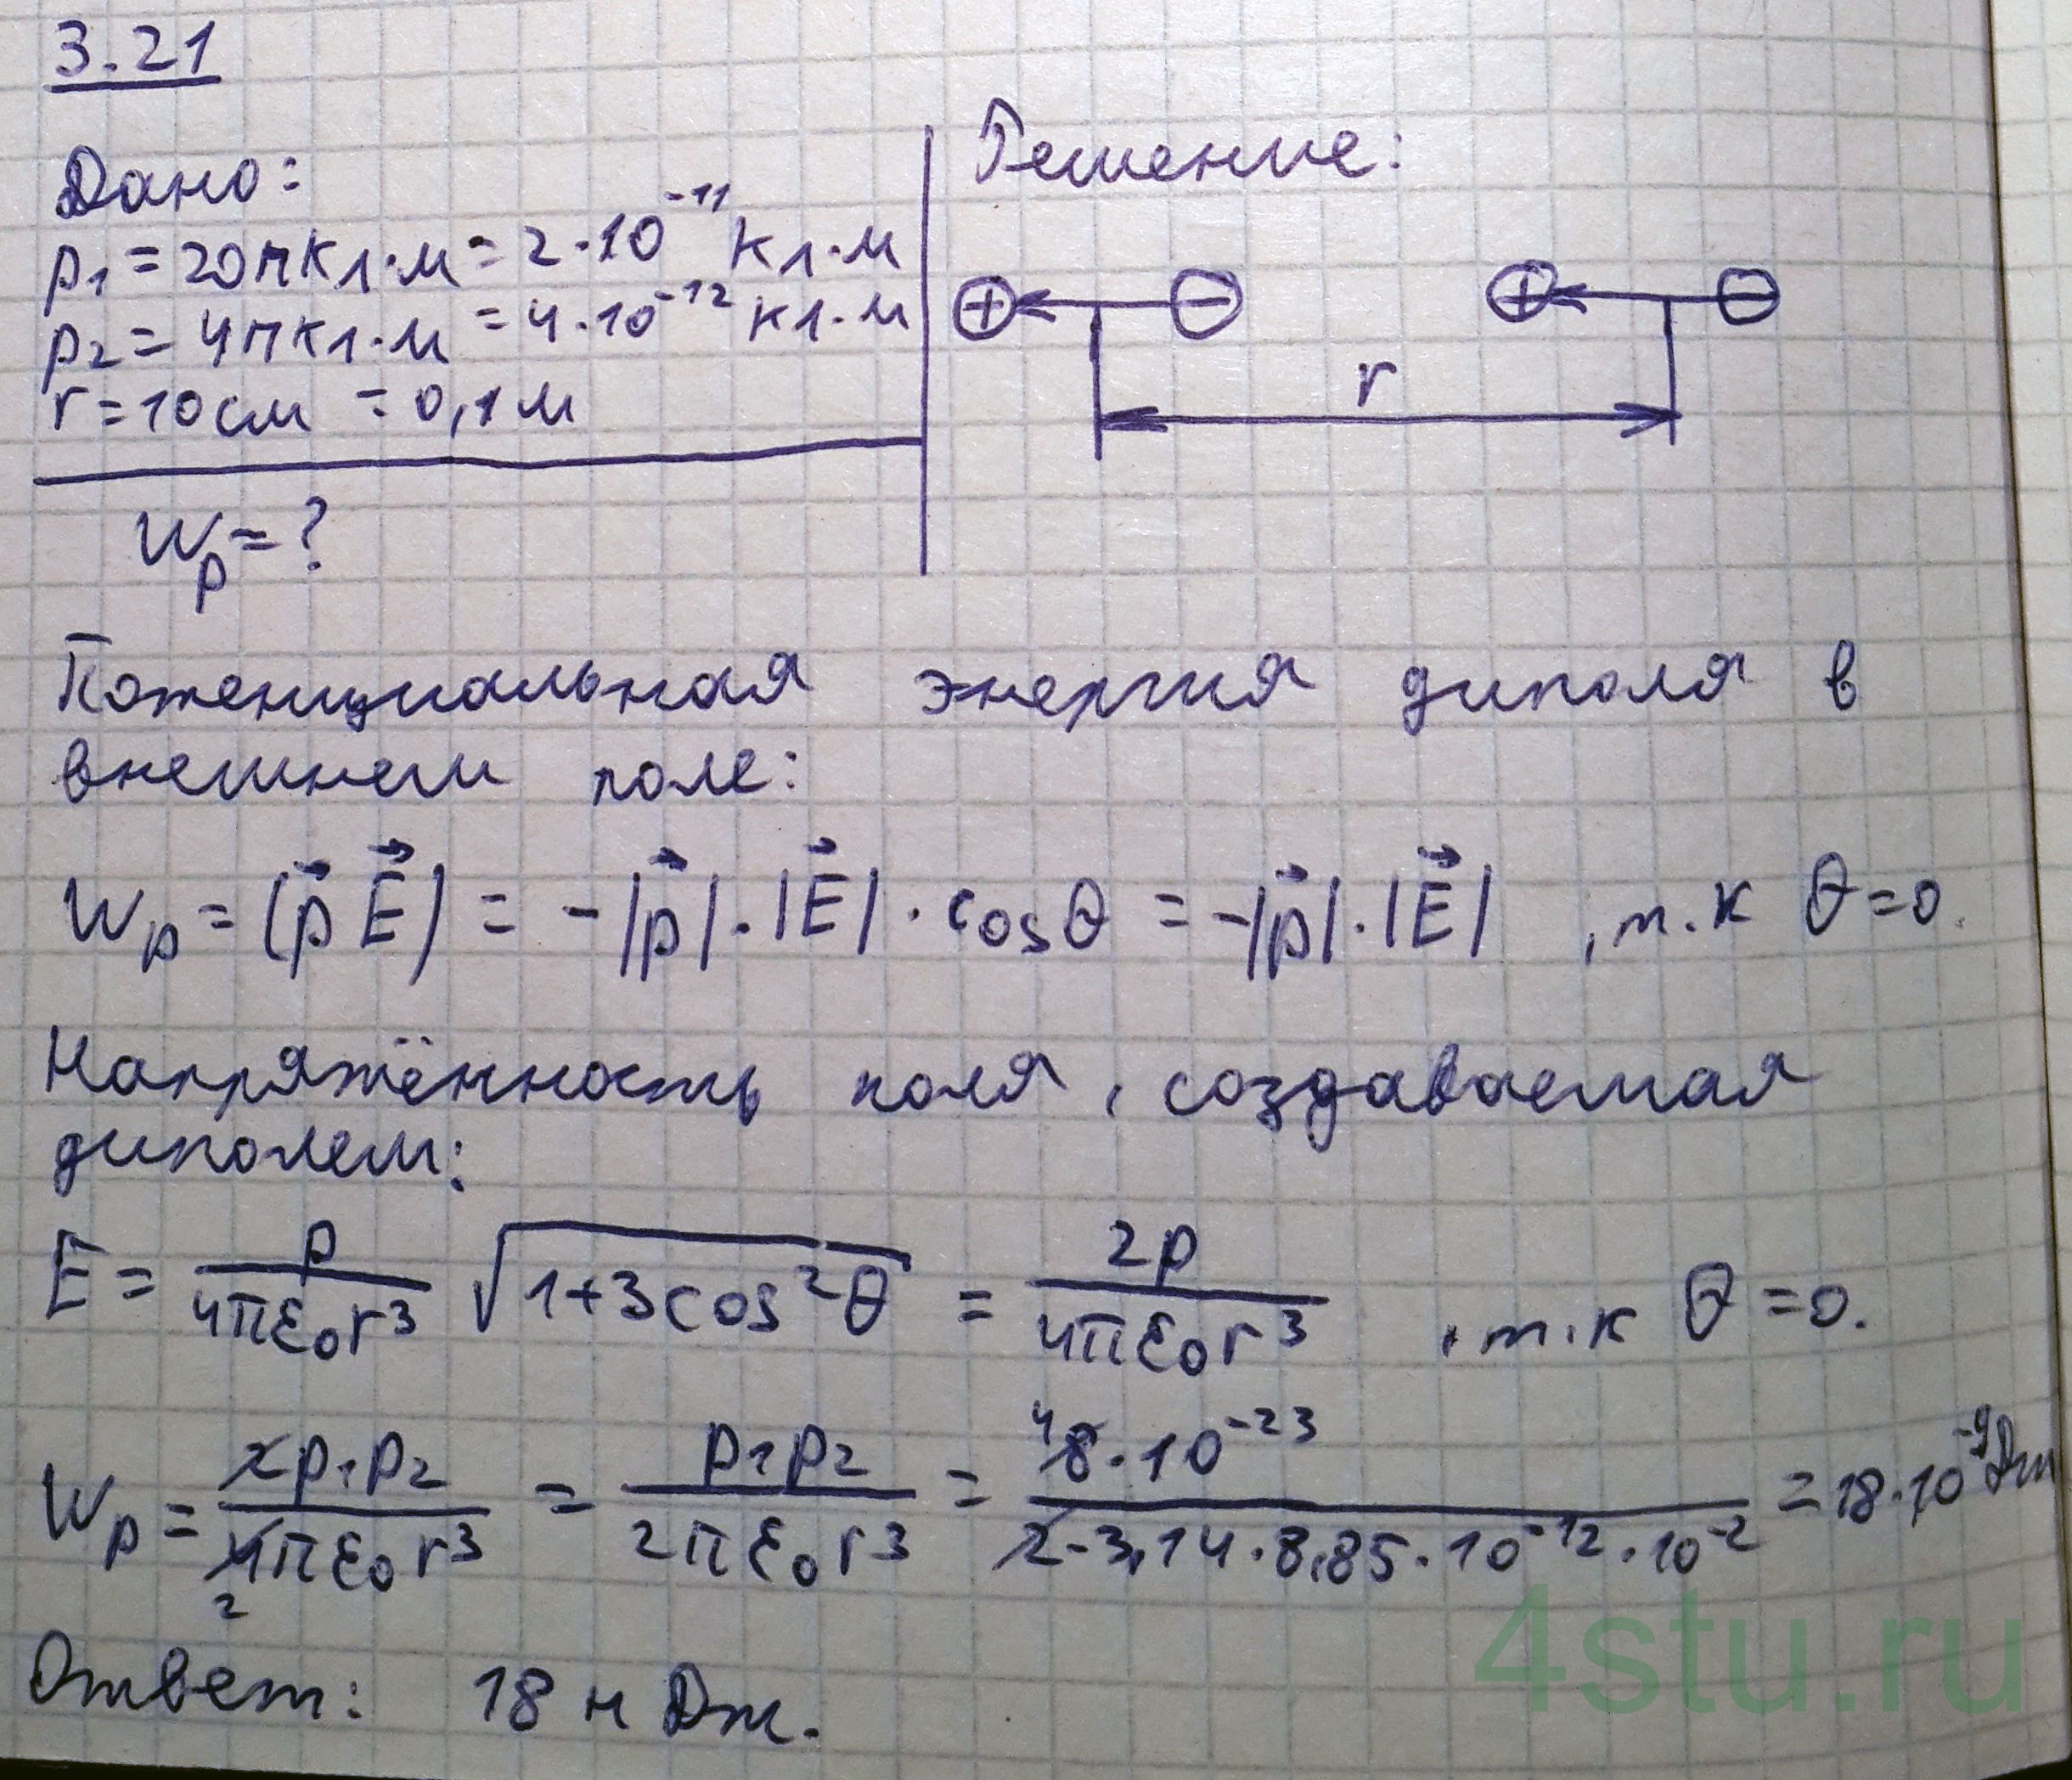 3.21
Дано:
p₁ = 20пКл·м = 2·10⁻¹¹ Кл·м
p₂ = 4пКл·м = 4·10⁻¹² Кл·м
r = 10см = 0,1м
Wₚ = ?
Решение:
⊕ ⊖ ⊕ ⊖
r
Потенциальная энергия диполя в
внешнем поле:
Wₚ = (p⃗ E⃗) = -|p⃗|·|E⃗|·cosθ = -|p⃗|·|E⃗| , т.к θ=0.
Напряжённость поля, создаваемая
диполем:
E = p/(4πε₀r³) √(1+3cos²θ) = 2p/(4πε₀r³) , т.к θ=0.
Wₚ = 2p₁p₂/(4πε₀r³) = p₁p₂/(2πε₀r³) = 8·10⁻²³/(2·3,14·8,85·10⁻¹²·10⁻²) = 18·10⁻⁹Дж
2 4
Ответ: 18 нДж.
4stu.ru